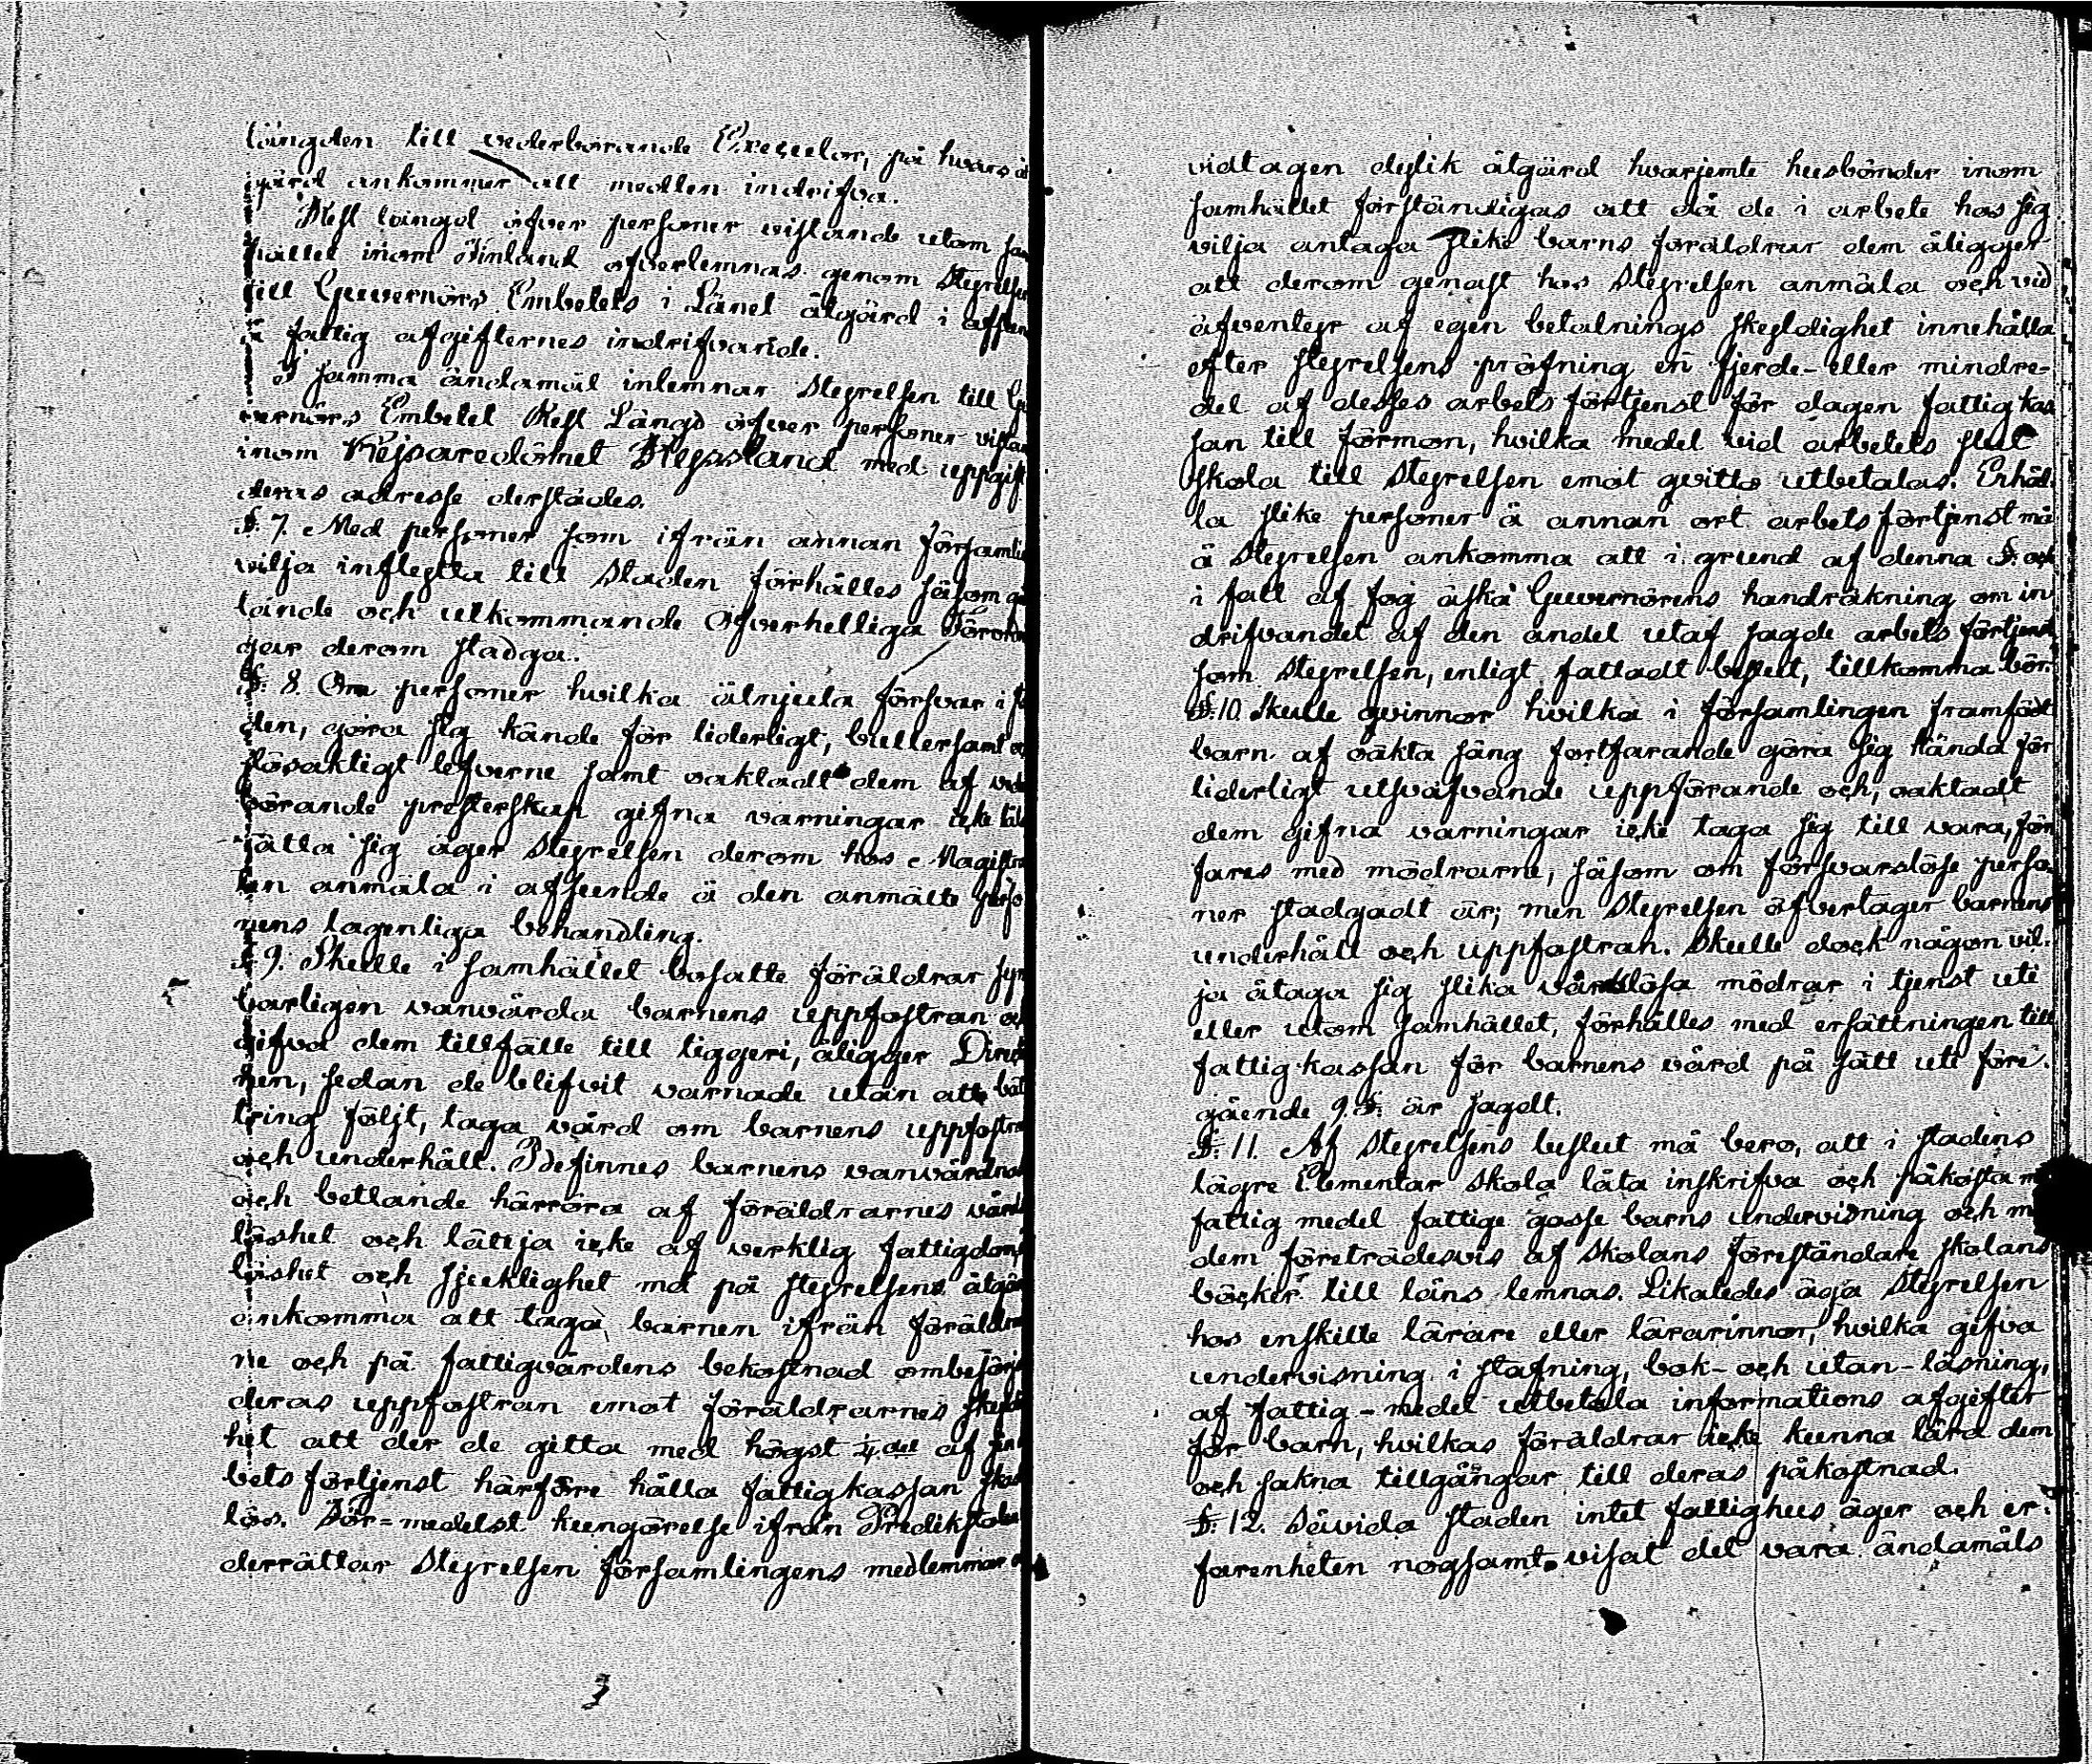 längden till vederbörande Executor, på hvars åt
gärd ankommer att medlen indrifva.
Rest längd öfver personer vistande utom sam
hället inom Finland öfverlemnas genom Styrelsen
till Guvernörs Embetets i Länet åtgärd i afseen
å fattig afgifternes indrifvande.
I samma ändamål inlemnar Styrelsen till Gu
vernörs Embetet Rest Längd öfver personer vistan
inom Kejsaredömet Ryssland med uppgift
deras adresse derstädes.
§. 7. Med personer som ifrån annan församlin
vilja inflytta till Staden förhålles såsom gäl
lande och utkommande Öfverhetliga Förordnin
gar derom stadga.
§. 8. Om personer hvilka åtnjuta försvar i sta
den, göra sig kände för liderligt, bullersamt och
lösaktigt lefverne samt oaktadt dem af veder
börande presterskap gifna varningar icke låta
rätta sig äger Styrelsen derom hos Magistra
ten anmäla i afseende å den anmälte perso
nens lagenliga behandling.
§ 9. Skulle i samhället bosatte föräldrar syn
barligen vanvårda barnens uppfostran och
gifva dem tillfälle till tiggeri, åligger Direkt
nen, sedan de blifvit varnade utan att bät
tring följt, taga vård om barnens uppfostran
och underhåll. Befinnes barnens vanvårdnad
och bettlande härröra af föräldrarnes vårds
löshet och lättja icke af verklig fattigdom,
löshet och sjuklighet må på styrelsens åtgärd
ankomma att taga barnen ifrån föräldrar
ne och på fattigvårdens bekostnad ombesörja
deras uppfostran emot föräldrarnes skyldig
het att der de gitta med högst ¼ del af sin ar
bets förtjenst härföre hålla fattigkassan skad
lös. För-medelst kungörelse ifrån Predikstolen
derrättar Styrelsen församlingens medlemmar om
3
vidtagen dylik åtgärd hvarjemte husbönder inom
samhället förständigas att då de i arbete hos sig
vilja antaga slike barns föräldrar dem åligger
att derom genast hos Styrelsen anmäla och vid
äfventyr af egen betalnings skyldighet innehålla
efter styrelsens pröfning en fjerde- eller mindre-
del af desses arbets förtjenst för dagen fattigkas
san till förmon, hvilka medel vid arbetets slut
skola till Styrelsen emot qvitto utbetalas. Erhål-
la slike personer å annan ort arbets förtjenst må
å Styrelsen ankomma att i grund af denna §. och
i fall af fog äska Guvernörens handräkning om in
drifvandet af den andel utaf sagde arbets förtjenst
som Styrelsen, enligt fattadt beslut, tillkomma bör.
§. 10. Skulle qvinnor hvilka i församlingen framfödt
barn af oäkta säng fortfarande göra sig kända för
liderligt utsväfvande uppförande och, oaktadt
dem gifna varningar icke taga sig till vara, för
fares med mödrarne, såsom om försvarslöse perso-
ner stadgadt är; men Styrelsen öfvertager barnens
underhåll och uppfostran. Skulle dock någon vil-
ja åtaga sig slika vårdslösa mödrar i tjenst uti
eller utom samhället, förhålles med ersättningen till
fattig-kassan för barnens vård på sätt uti före-
gående 9. §. är sagdt.
§. 11. Af Styrelsens beslut må bero, att i stadens
lägre Elementar Skola låta inskrifva och påkosta m
fattig medel fattige gosse barns undervisning och m
dem företrädesvis af Skolans föreståndare skolans
böcker till låns lemnas. Likaledes äga Styrelsen
hos enskilte lärare eller lärarinnor, hvilka gifva
undervisning i stafning, bok- och utan-läsning,
af fattig-medel utbetala informations afgifter
för barn, hvilkas föräldrar icke kunna lära dem
och sakna tillgångar till deras påkostnad.
§. 12. Såvida staden intet fattighus äger och er-
farenheten nogsamt visat det vara ändamåls